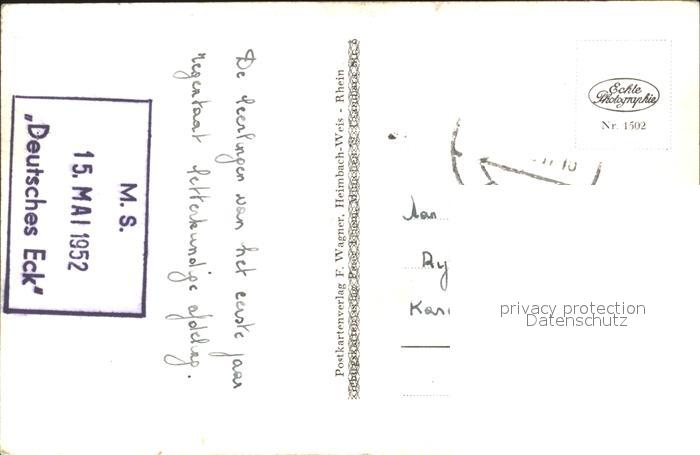 De leerlingen van het eerste jaar
regentaat letterkundige afdeling.
M. S.
15. MAI 1952
„Deutsches Eck“
Postkartenverlag F. Wagner, Heimbach-Weis - Rhein
Echte
Photographie
Nr. 1502
Aan
Ry
Kas
privacy protection
Datenschutz